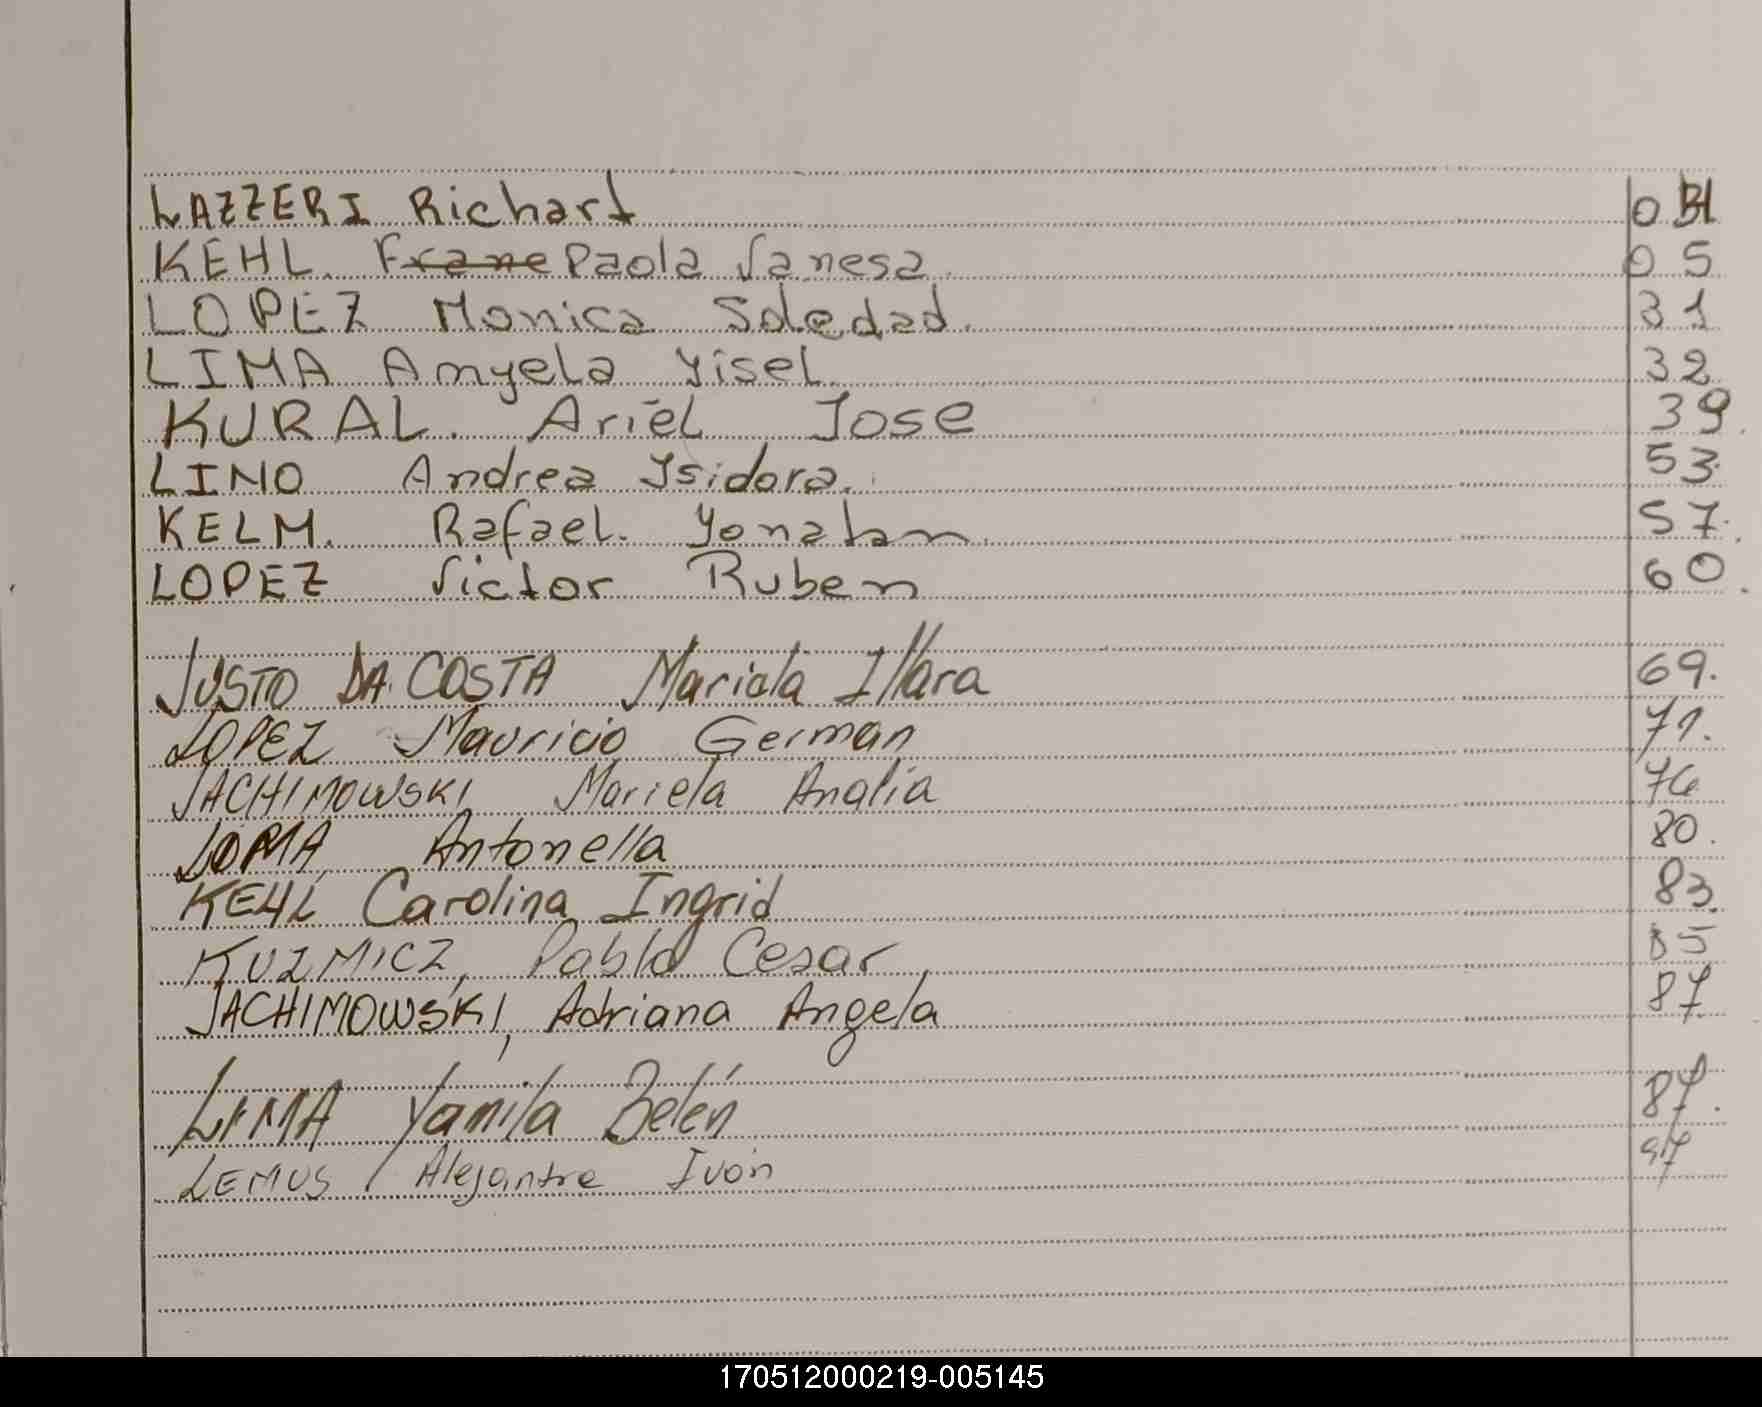 LAZZERI Richart 0
KEHL. Frane Paola Vanesa. 05
LOPEZ Monica Soledad. 31
LIMA Amyela Yisel. 32
KURAL. Ariel Jose 39.
LINO Andrea Ysidora. 53.
KELM. Rafael. Yonatan. 57.
LOPEZ Victor Ruben 60.
JUSTO DA COSTA Mariela Ilara 69.
LOPEZ Mauricio German 71.
JACHIMOWSKI, Mariela Analia 76
LOMA, Antonella 80.
KEHL Carolina Ingrid 83.
KUZMICZ, Pablo Cesar, 85
JACHIMOWSKI, Adriana Angela 87.
LIMA Yamila Belén 87.
LEMUS, Alejantre Ivon 97
170512000219-005145